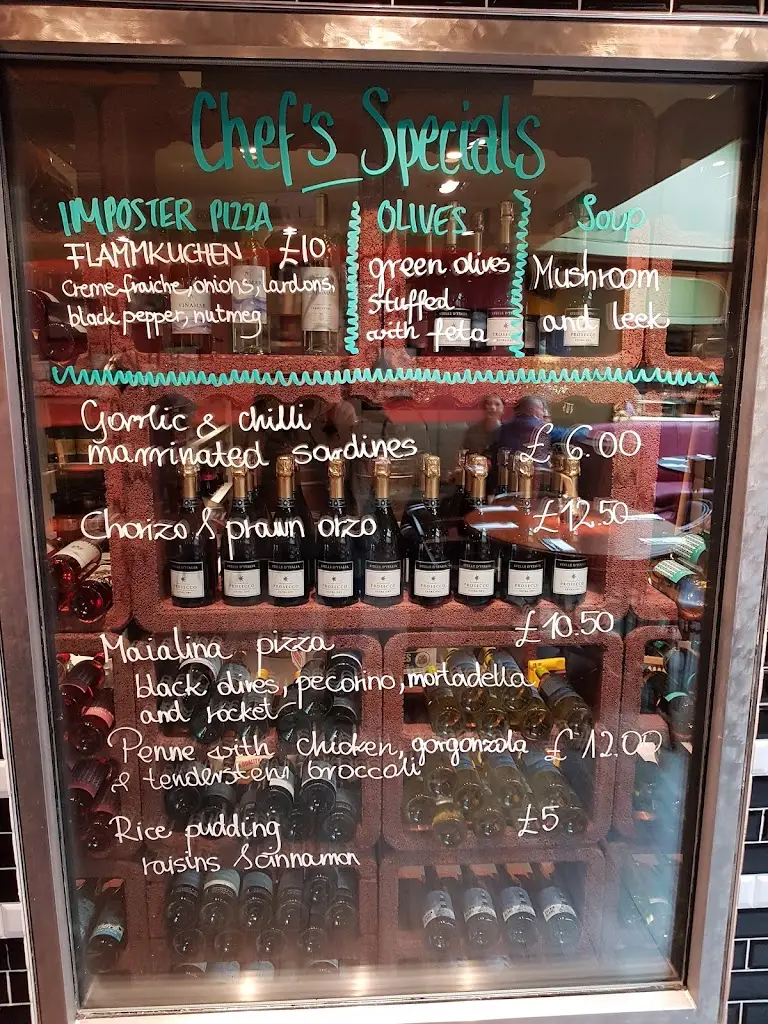 Chef's Specials
IMPOSTER PIZZA
FLAMMKUCHEN £10
Creme fraiche, onions, lardons,
black pepper, nutmeg
OLIVES
green olives
stuffed
with feta
Soup
Mushroom
and leek
Garlic & chilli
marrinated sardines £6.00
Chorizo & prawn orzo £12.50
Maialina pizza £10.50
black olives, pecorino, mortadella
and rocket
Penne with chicken, gorgonzola £12.00
& tenderstem broccoli
Rice pudding £5
raisins & cinnamon
PROSECCO
PROSECCO
PROSECCO
PROSECCO
PROSECCO
PROSECCO
PROSECCO
PROSECCO
PROSECCO